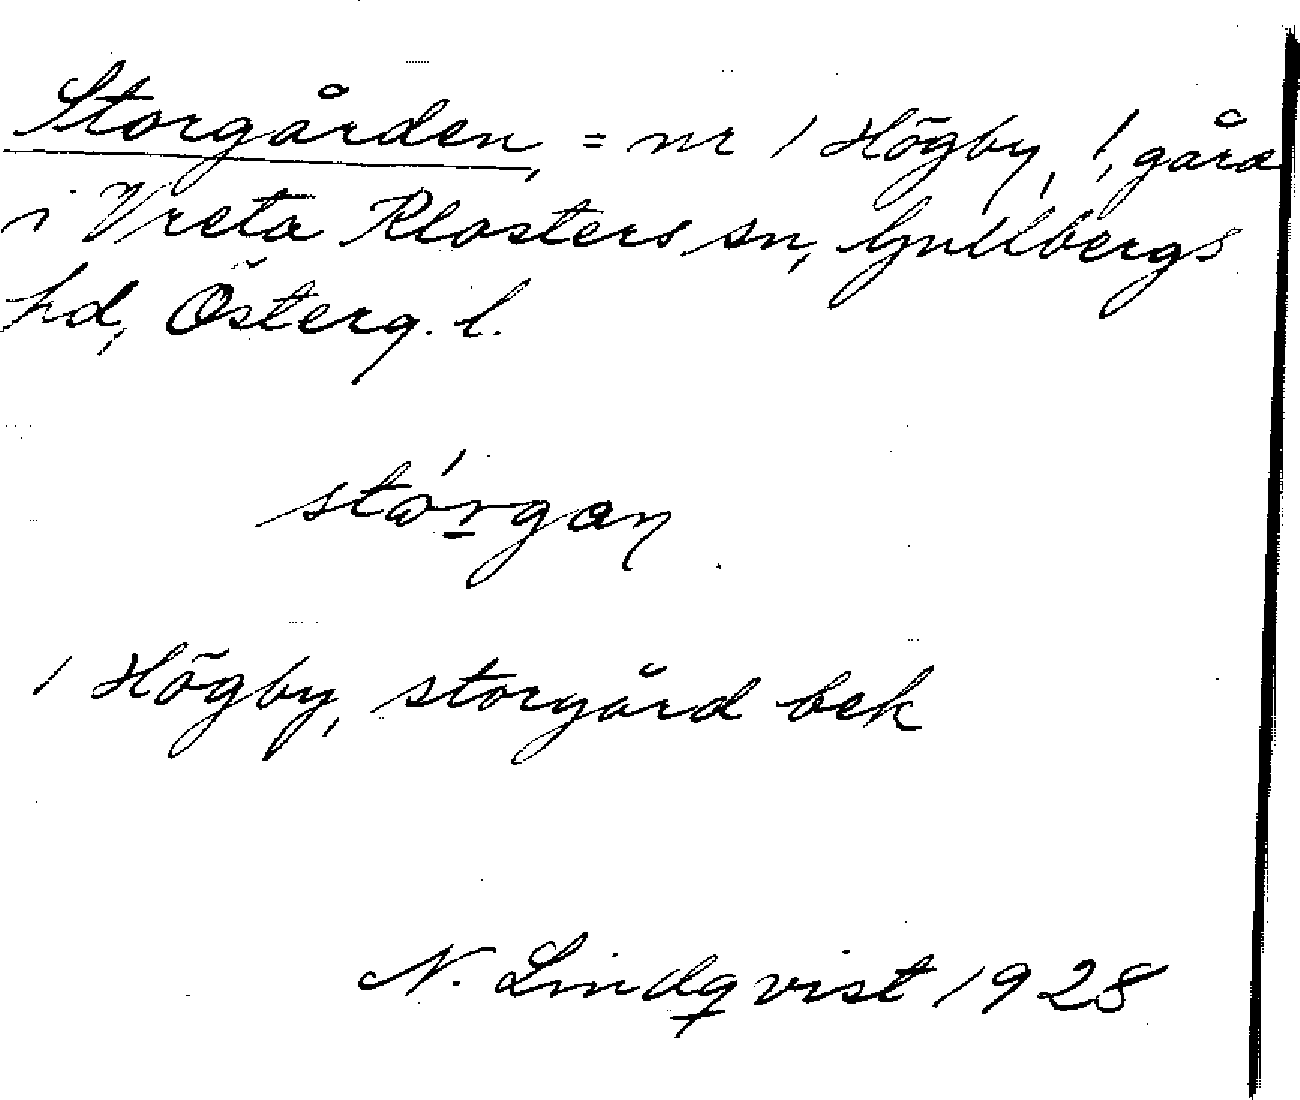 Storgården, = nr 1 Högby, !, gård
i Vreta Klosters sn, Gullbergs
hd, Österg. l.
stórgan
1 Högby, storgård bek
N. Lindqvist 1928